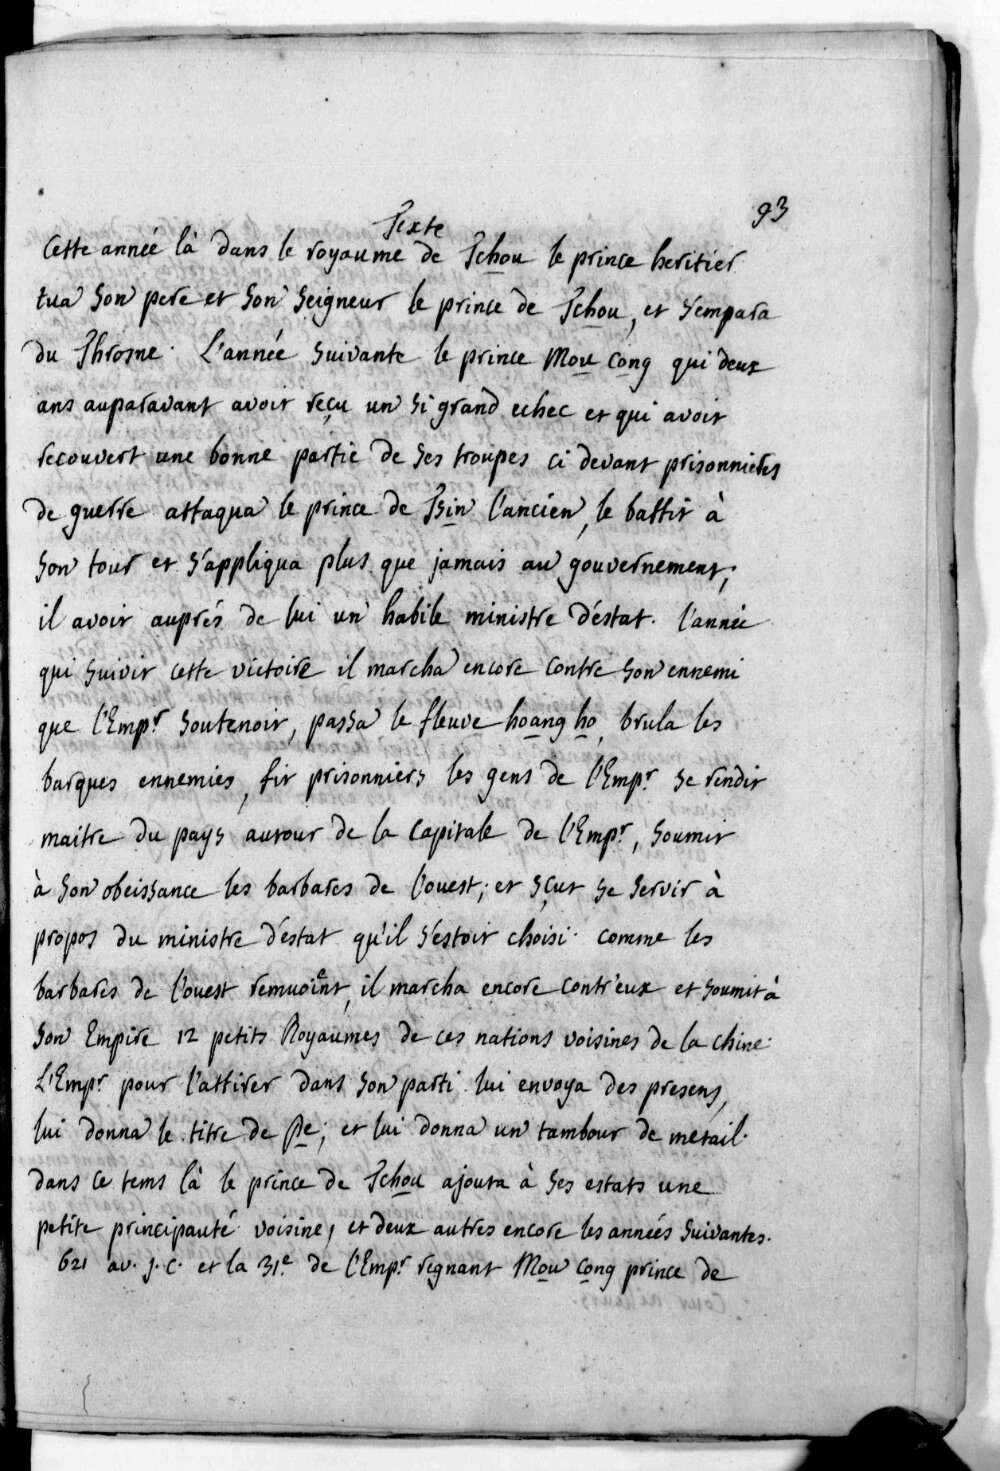 93
Texte
Cette année là dans le royaume de Tchou le prince heritier
tua son pere et son seigneur le prince de Tchou, et s'empara
du Throsne. L'année suivante le prince Mou cong qui deux
ans auparavant avoit reçu un si grand echec et qui avoit
recouvert une bonne partie de ses troupes ci devant prisonnieres
de guerre attaqua le prince de Tsin l'ancien, le battit à
son tour et s'appliqua plus que jamais au gouvernement;
il avoit auprés de lui un habile ministre d'éstat. l'année
qui suivit cette victoire il marcha encore contre son ennemi
que l'Empr soutenoit, passa le fleuve hoang ho, brula les
barques ennemies, fit prisonniers les gens de l'Empr se rendit
maitre du pays autour de la capitale de l'Empr, soumit
à son obeissance les barbares de l'ouest; et sçut se servir à
propos du ministre d'estat qu'il s'estoit choisi. comme les
barbares de l'ouest remuoient, il marcha encore contr'eux et soumit à
son Empire 12 petits Royaumes de ces nations voisines de la chine.
L'Empr pour l'attirer dans son parti lui envoya des presens,
lui donna le titre de Pe; et lui donna un tambour de metail.
dans ce tems là le prince de Tchou ajouta à ses estats une
petite principauté voisine, et deux autres encore les années suivantes.
621 av. J. C. et la 31e de l'Empr regnant Mou cong prince de